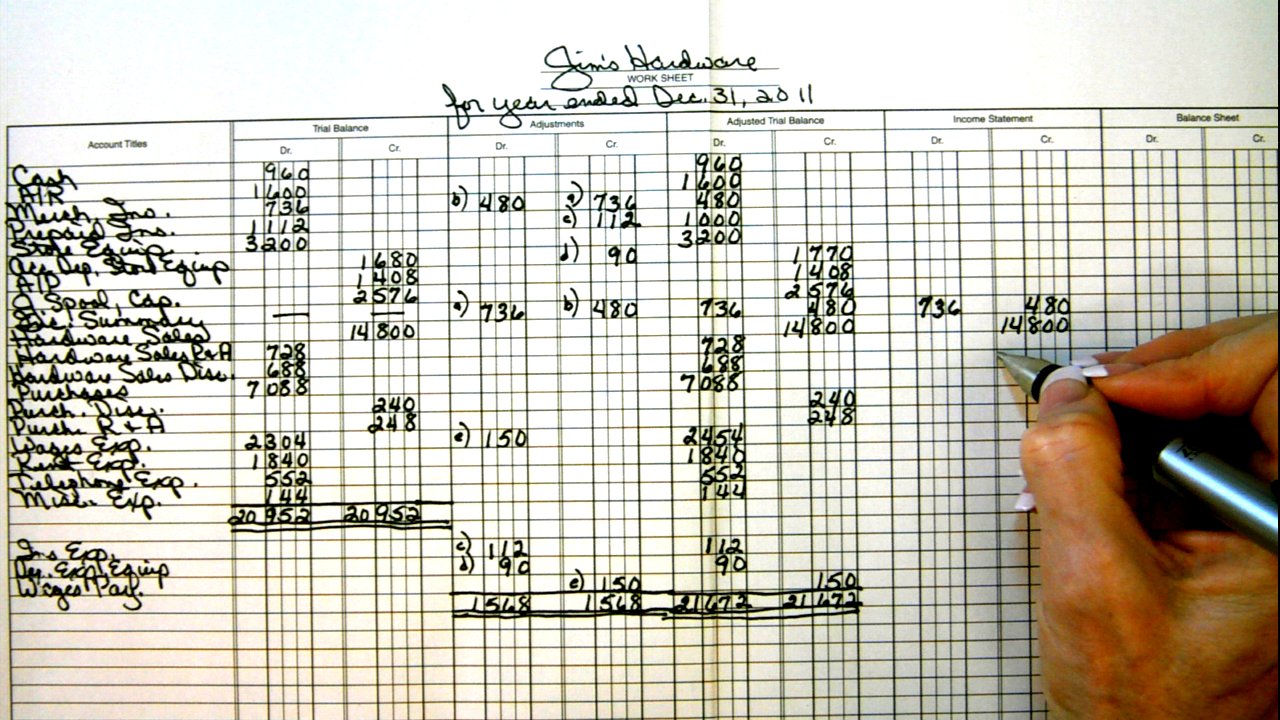 Jim's Hardware
WORK SHEET
for year ended Dec. 31, 2011
Account Titles Trial Balance Adjustments Adjusted Trial Balance Income Statement Balance Sheet
Dr. Cr. Dr. Cr. Dr. Cr. Dr. Cr. Dr. Cr.
Cash 960 960
A/R 1600 1600
Merch. Inv. 736 b) 480 a) 736 480
Prepaid Ins. 1112 c) 112 1000
Store Equip. 3200 3200
Acc. Dep. Store Equip 1680 d) 90 1770
A/P 1408 1408
J. Spool, Cap. 2576 2576
Inc. Summary — — a) 736 b) 480 736 480 736 480
Hardware Sales 14800 14800 14800
Hardware Sales R&A 728 728
Hardware Sales Disc. 688 688
Purchases 7088 7088
Purch. Disc. 240 240
Purch. R & A 248 248
Wages Exp. 2304 e) 150 2454
Rent Exp. 1840 1840
Telephone Exp. 552 552
Misc. Exp. 144 144
20952 20952
Ins Exp. c) 112 112
Dep. Exp Equip d) 90 90
Wages Pay. e) 150 150
1568 1568 21672 21672